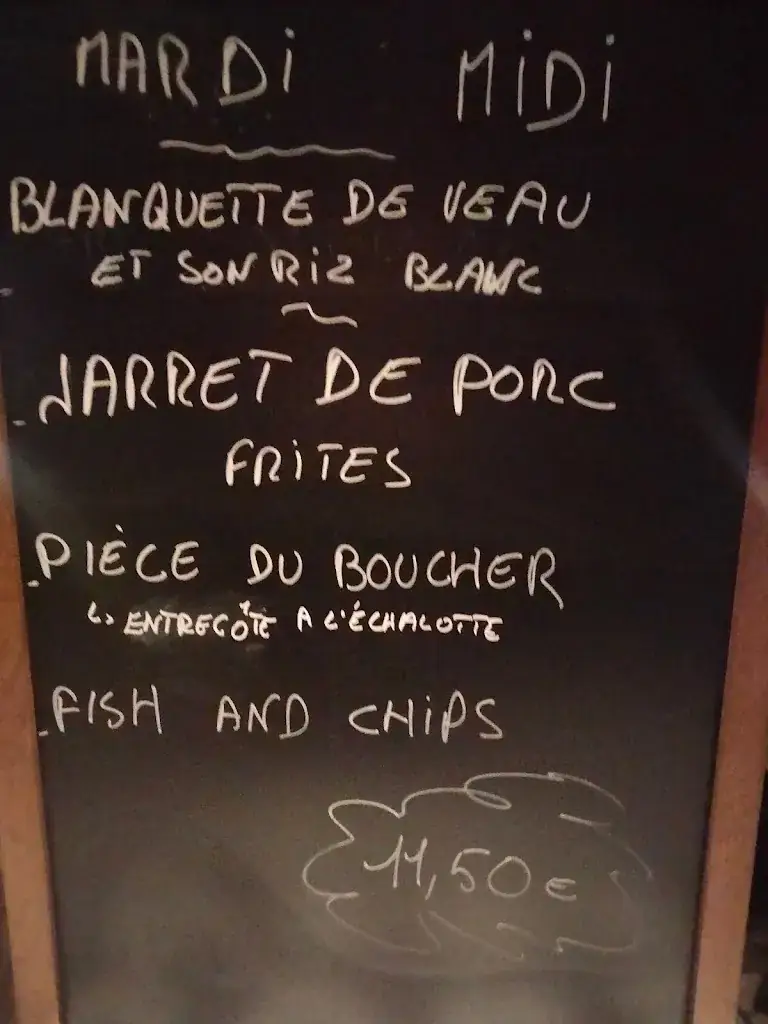 MARDi MiDi
BLANQUETTE DE VEAU
ET SON RiZ BLANC
JARRET DE PORC
FRiTES
PIÈCE DU BOUCHER
↳ ENTRECÔTE A L'ÉCHALOTTE
FISH AND CHiPS
11,50€